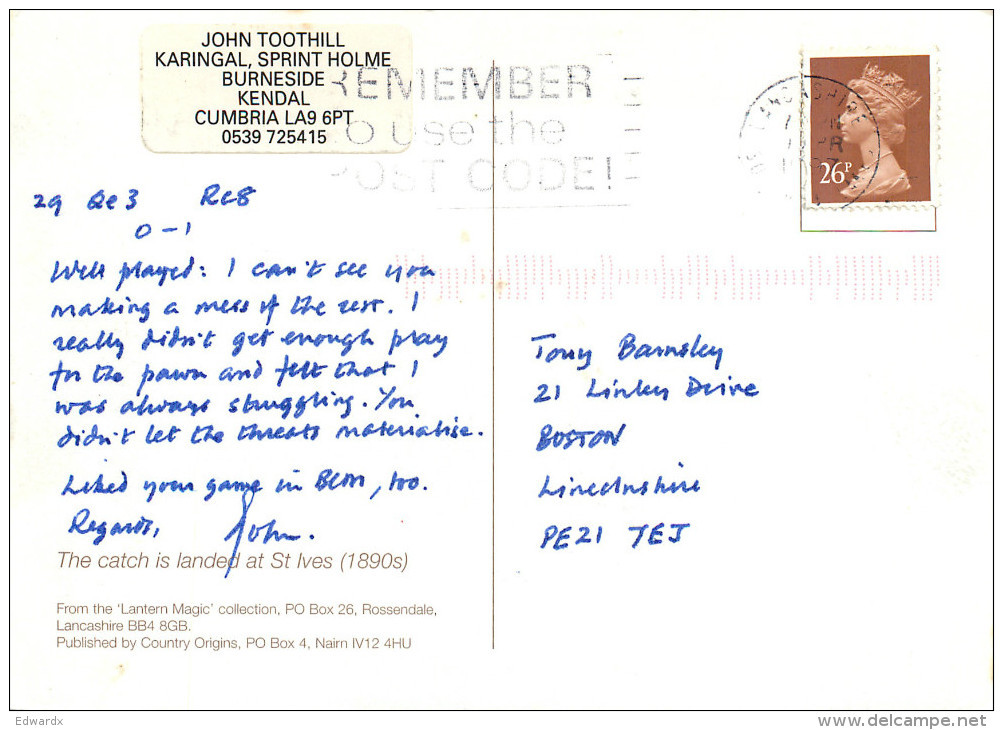 JOHN TOOTHILL
KARINGAL, SPRINT HOLME
BURNESIDE
KENDAL
CUMBRIA LA9 6PT
0539 725415
REMEMBER
O use the
POST CODE!
LANCASHIRE
26P
29 Qe3 Rc8
0-1
Well played: I can't see you
making a mess of the rest. I
really didn't get enough play
for the pawn and felt that I
was always struggling. You
didn't let the threats materialise.
Liked your game in BCM, too.
Regards, John.
The catch is landed at St Ives (1890s)
From the 'Lantern Magic' collection, PO Box 26, Rossendale,
Lancashire BB4 8GB.
Published by Country Origins, PO Box 4, Nairn IV12 4HU
Tony Barnsley
21 Linley Drive
BOSTON
Lincolnshire
PE21 7EJ
Edwardx
delcampe.net